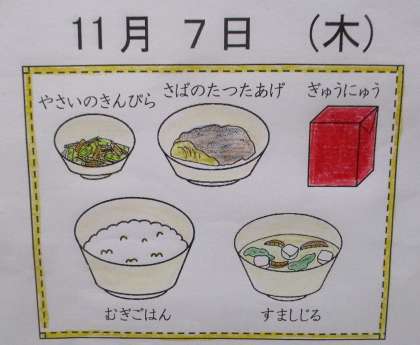 11月 7日 (木)
やさいのきんぴら
さばのたつたあげ
ぎゅうにゅう
むぎごはん
すましじる